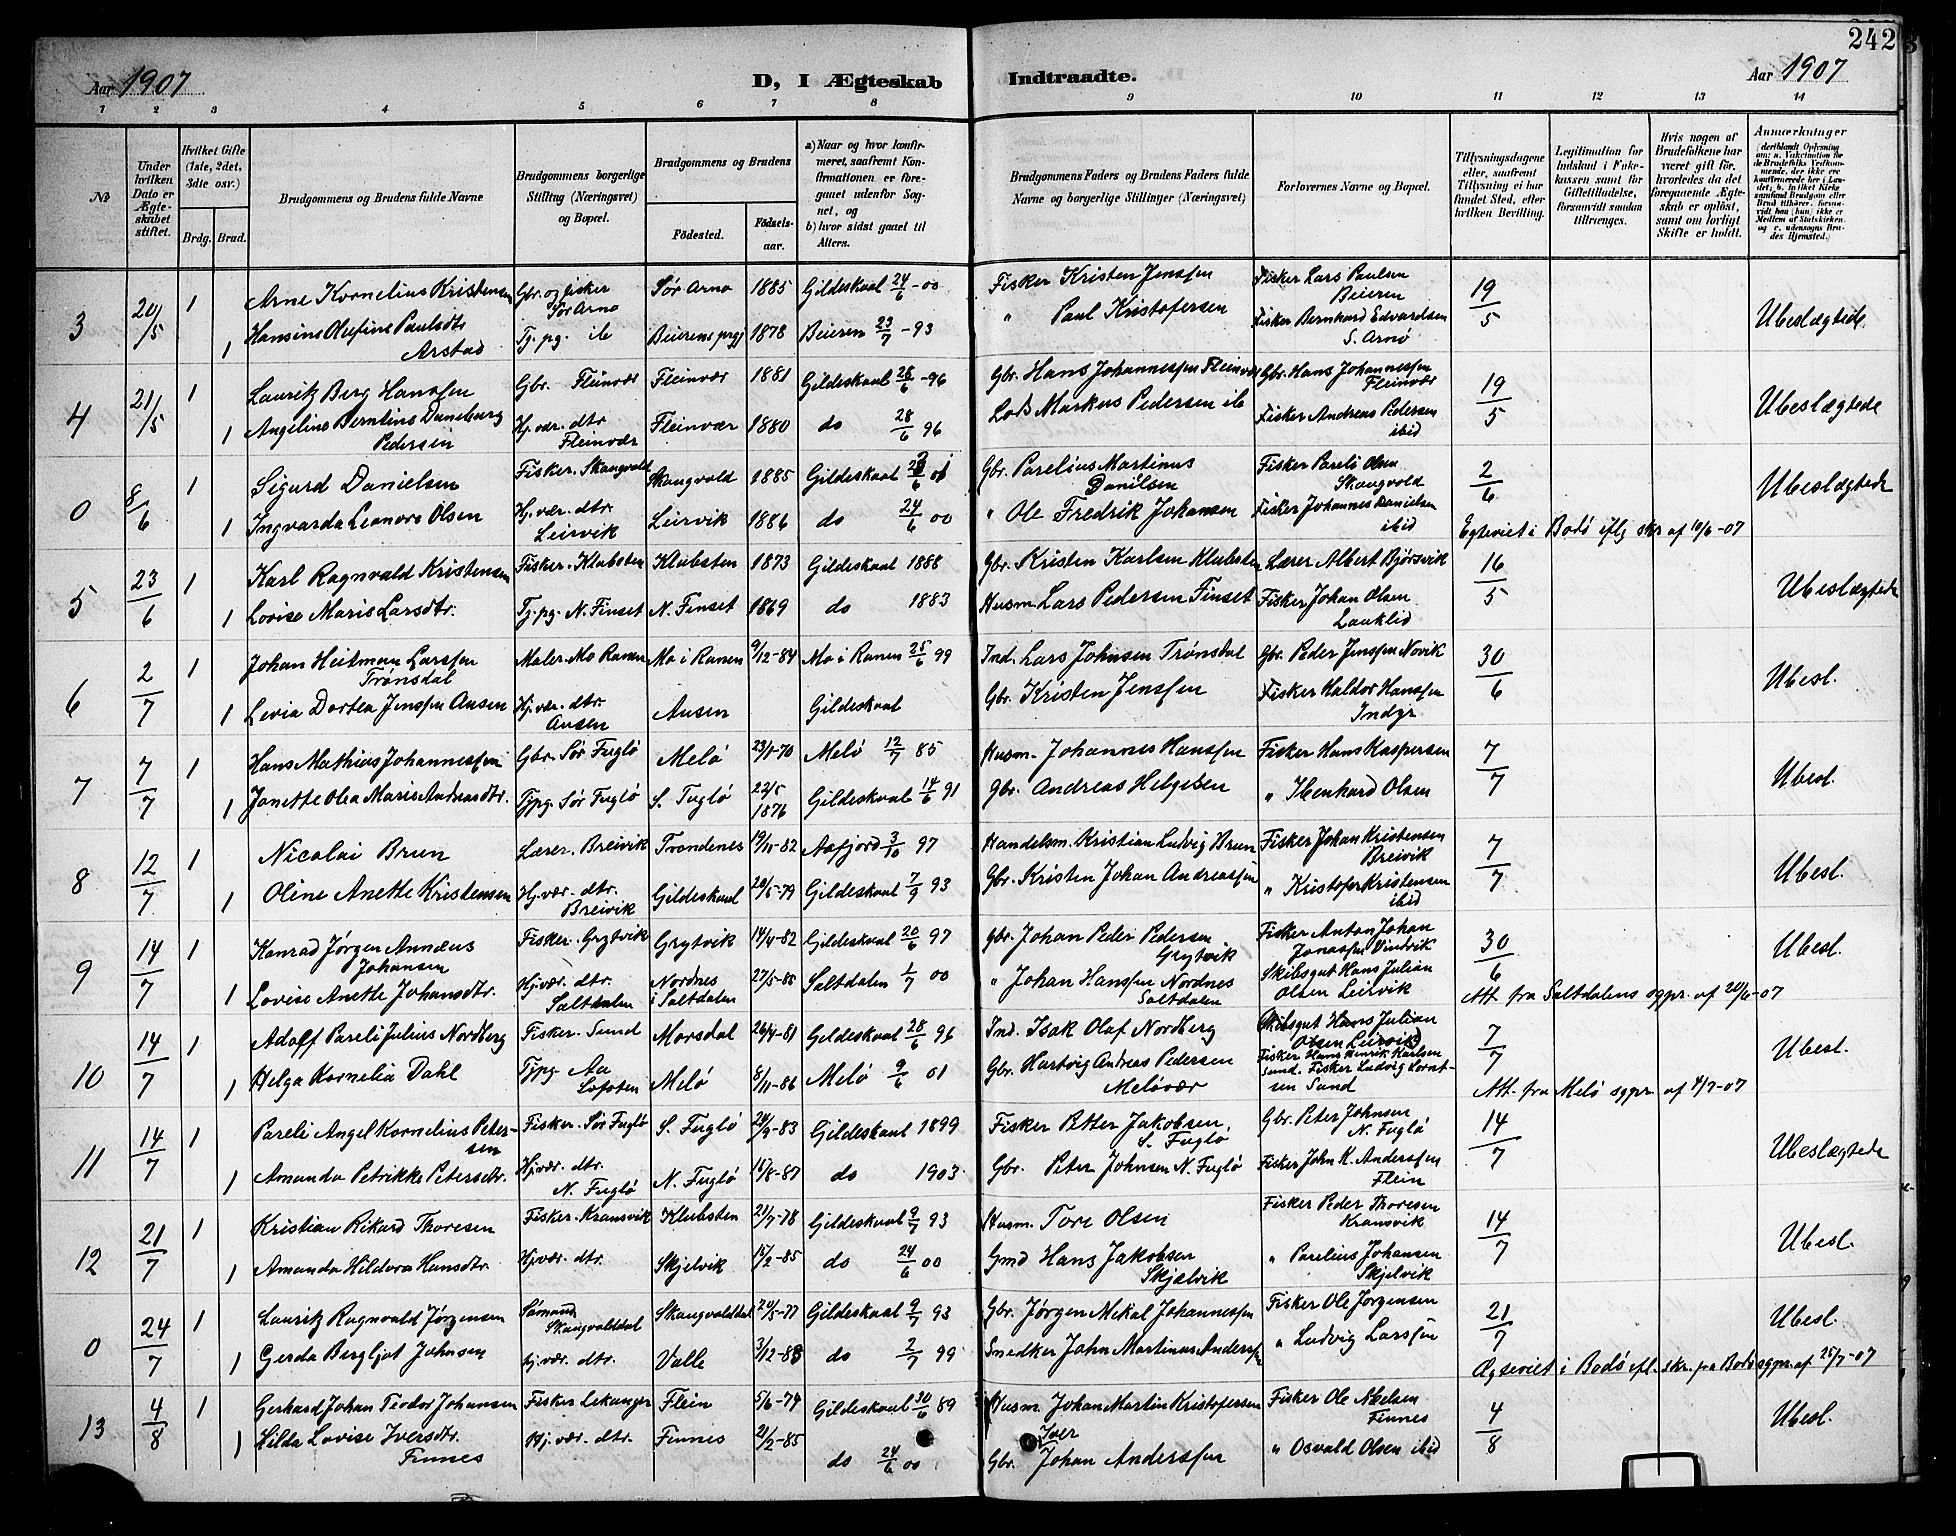 242
Aar 1907
D, I Ægteskab Indtraadte.
Aar 1907
1 2 3 4 5 6 7 8 9 10 11 12 13 14
№
Under hvilken Dato er Ægteskabet stiftet.
Hvilket Gifte (1ste, 2det, 3die osv.)
Brdg. Brud.
Brudgommens og Brudens fulde Navne
Brudgommens borgerlige Stilling (Næringsvei) og Bopæl.
Brudgommens og Brudens
Fødested. Fødselsaar.
a) Naar og hvor konfirmeret, saafremt Konfirmationen er foregaaet udenfor Sognet, og
b) hvor sidst gaaet til Alters.
Brudgommens Faders og Brudens Faders fulde Navne og borgerlige Stillinger (Næringsvei)
Forlovernes Navne og Bopæl.
Tillysningsdagene eller, saafremt Tillysning ei har fundet Sted, efter hvilken Bevilling.
Legitimation for Indskud i Enkekassen samt for Giftetilladelse, forsaavidt saadan tiltrænges.
Hvis nogen af Brudefolkene har været gift før, hvorledes da det foregaaende Ægteskab er opløst, samt om lovligt Skifte er holdt.
Anmærkninger
3 20/5 1 Arne Kornelius Kristensen Gbr. og fisker Sør Arnø Sør Arnø 1885 Gildeskaal 24/6-00 Fisker Kristen Jenssen Fisker Lars Paulsen Beieren 19/5 Ubeslægtede
1 Hansine Olufine Paulsdtr Arstad Tj. pg. ib Beierens prgj 1878 Beieren 23/7-93 " Paul Kristofersen Fisker Bernhard Edvardsen S. Arnø
4 21/5 1 Lauritz Berg Hanssen Gbr. Fleinvær Fleinvær 1881 Gildeskaal 28/6-96 Gbr. Hans Johannessen Fleinvær Gbr. Hans Johannessen Fleinvær 19/5 Ubeslægtede
1 Angeline Berntine Daneborg Pedersen Hj. vær. dtr Fleinvær Fleinvær 1880 do 28/6 96 Lods Markus Pedersen ib Fisker Andreas Pedersen ibid
0 8/6 1 Sigurd Danielsen Fisker. Skaugvold Skaugvold 1885 Gildeskaal 01 Gbr. Parelius Martinus Danilsen Fisker Pareli Olsen Skaugvold 2/6 Ubeslægtede
1 Ingvarda Leonora Olsen Hj. vær. dtr. Leirvik Leirvik 1886 do 24/6 00 " Ole Fredrik Johansen Fisker Johannes Danielsen ibid
Egteviet i Bodø iflg skr af 10/6-07
5 23/6 1 Karl Ragnvald Kristensen Fisker. Klubsten Klubsten 1873 Gildeskaal 1888 Gbr. Kristen Karlsen Klubsten Lærer Albert Bjørsvik 16/5 Ubeslægtede
1 Lovise Marie Larsdtr. Tj. pg. N. Finset N. Finset 1869 do 1883 Husm. Lars Pedersen Finset Fisker Johan Olsen Lauklid
6 2/7 1 Johan Heitman Larssen Trønsdal Maler. Mo Ranen Mo i Ranen 9/12-84 Mo i Ranen 25/6 99 Ind. Lars Johnsen Trønsdal Gbr. Peder Jenssen Novik 30/6 Ubesl.
1 Levia Dortea Jenssen Ausen Hj. vær. dtr. Ausen Ausen Gildeskaal Gbr. Kristen Jenssen Fisker Haldor Hanssen Indyr
7 7/7 1 Hans Mathias Johannessen Gbr. Sør Fuglø Melø 23/1-70 Melø 12/7 85 Husm. Johannes Hanssen Fisker Hans Kaspersen 7/7 Ubesl.
1 Janette Olea Marie Andreasdtr. Tjpg. Sør Fuglø S. Fuglø 22/5 1876 Gildeskaal 14/6 91 Gbr. Andreas Helgesen " Ibenhard Olsen
8 12/7 1 Nicolai Brun Lærer. Breivik Trondenes 19/11-82 Aafjord 3/10 97 Handelsm. Kristian Ludvig Brun Fisker Johan Kristensen Breivik 7/7 Ubesl.
1 Oline Anette Kristensen Hj. vær. dtr. Breivik Gildeskaal 29/5-79 Gildeskaal 7/9 93 Gbr. Kristen Johan Andreassen " Kristofer Kristensen ibid
9 14/7 1 Konrad Jørgen Annæus Johansen Fisker. Grytvik Grytvik 14/4-82 Gildeskaal 20/6 97 Gbr. Johan Peder Pedersen Grytvik Fisker Anton Johan Jonassen Vindvik 30/6 Ubesl.
1 Lovise Anette Johansdtr. Hj. vær. dtr. Saltdalen Nordnes i Saltdalen 27/5-85 Saltdalen 1/7 00 " Johan Hanssen Nordnes Saltdalen Skibsgut Hans Julian Olsen Leirvik
Att. fra Saltdalens sgpr. af 28/6-07
10 14/7 1 Adolf Pareli Julius Nordberg Fisker. Sund Morsdal 26/4-81 Gildeskaal 28/6 96 Ind. Isak Olaf Nordberg Skibsgut Hans Julian Olsen Leirvik 7/7 Ubesl.
1 Helga Kornelia Dahl Tjpg Aa Lofoten Melø 8/11-86 Melø 9/6 01 Gbr. Hartvig Andreas Pedersen Meløvær Fisker Hans Henrik Karlsen Sund. Fisker Ludvig Korneliussen Sund
Att. fra Melø sgpr. af 4/7-07
11 14/7 1 Pareli Angel Kornelius Petersen Fisker. Sør Fuglø S. Fuglø 24/9-83 Gildeskaal 1899 Fisker Petter Jakobsen, S. Fuglø Gbr. Peter Johnsen, N. Fuglø 14/7 Ubeslægtede
1 Amanda Petrikke Petersdtr. Hj. vær. dtr. N. Fuglø N. Fuglø 15/8-87 do 1903 Gbr. Peter Johnsen N. Fuglø Fisker John K. Anderssen Flein
12 21/7 1 Kristian Rikard Thoresen Fisker. Kransvik Klubsten 21/7-78 Gildeskaal 9/7 93 Husm. Tore Olsen Fisker Peder Thoresen Kransvik 14/7 Ubesl.
1 Amanda Hildora Hansdtr. Hj. vær. dtr. Skjelvik 15/2-85 do 24/6 00 Gmd Hans Jakobsen Skjelvik " Parelius Johansen Skjelvik
0 24/7 1 Lauritz Ragnvald Jørgensen Sømand Skaugvoldal Skaugvoldal 20/5-77 Gildeskaal 9/7 93 Gbr. Jørgen Mekal Johannessen Fisker Ole Jørgensen 21/7 Ubesl.
1 Gerda Bergljot Johnsen Hj. vær. dtr. Valle 3/12-83 do 2/7 99 Snedker John Martinus Anderssen " Ludvig Larssen
Ægteviet i Bodø efl. skr. fra Bodø sgpr. af 25/7-07
13 4/8 1 Gerhard Johan Teodor Johansen Fisker Lekanger Flein 5/6-74 Gildeskaal 30/6 89 Husm. Johan Martin Kristofersen Fisker Ole Nielsen Finnes 4/8 Ubesl.
1 Hilda Lovise Iversdtr. Finnes Hj. vær. dtr. Finnes 21/2-85 do 24/6 00 Gbr. Iver Johan Anderssen " Osvald Olsen ibid